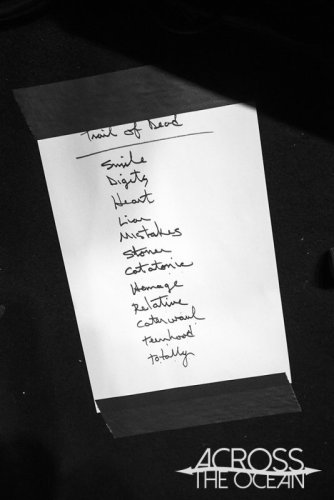 Trail of Dead
Smile
Digits
Heart
Liar
Mistakes
Stoner
Catatonic
Homage
Relative
Caterwaul
teenhood
totally
ACROSS
THE OCEAN